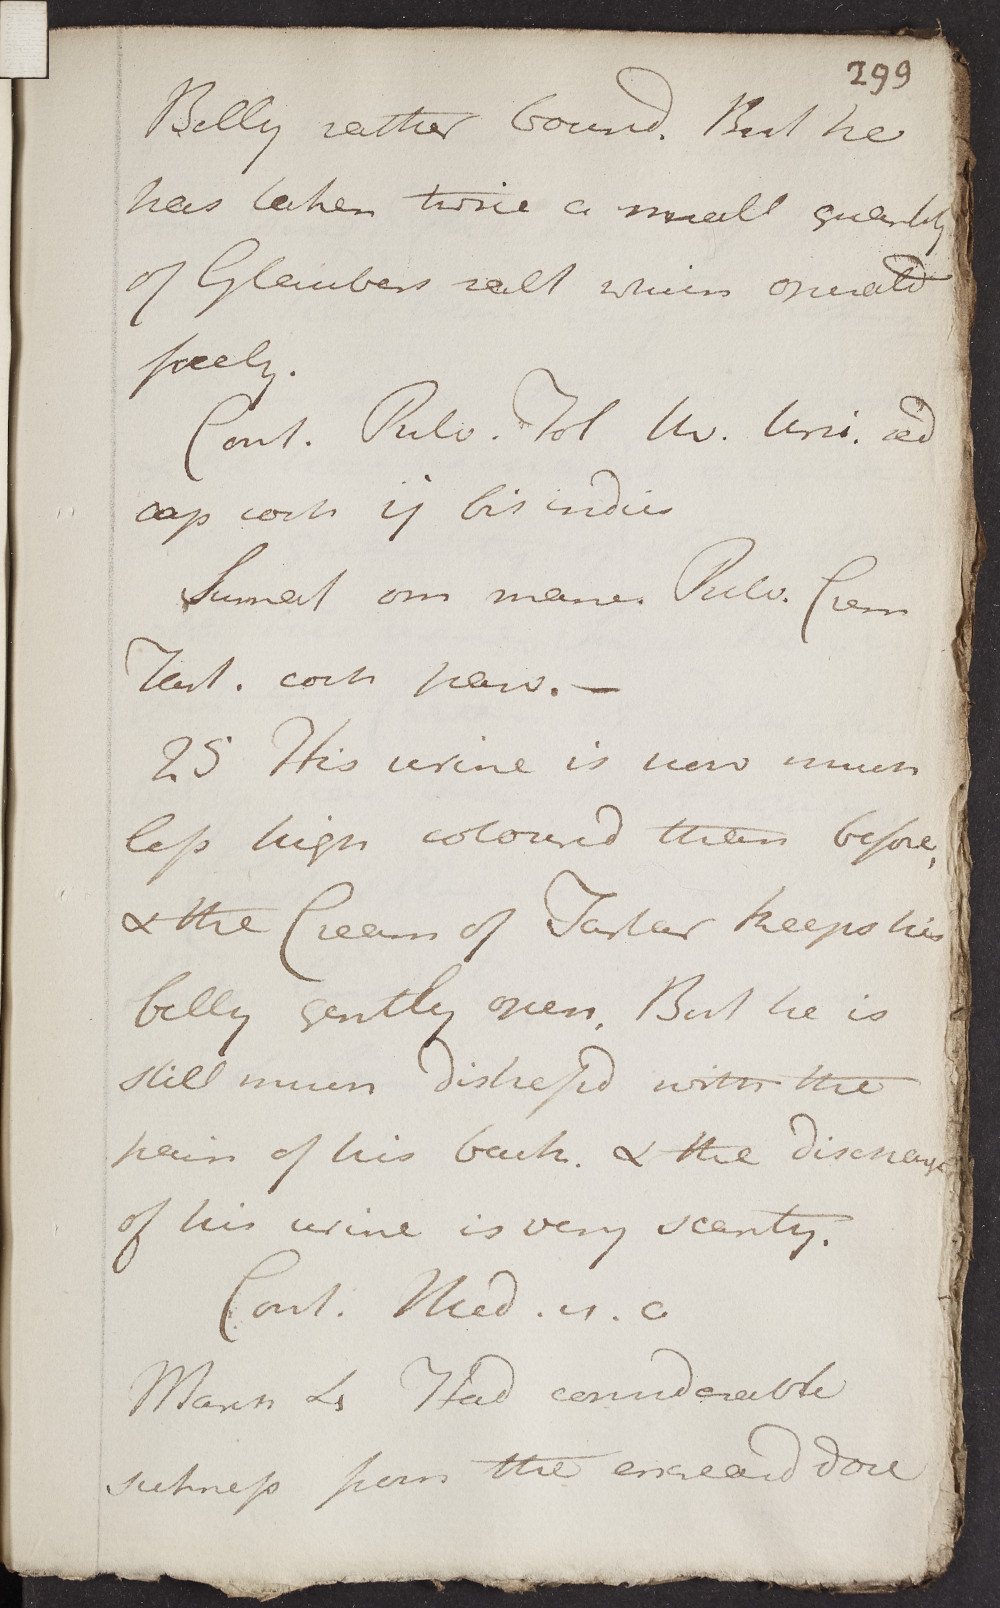 299
Belly rather bound. But he
has taken twice a small quantity
of Glaubers salt which operated
freely.
Cont. Pulv. Fol Uv. Ursi. ad
cap coch ij bis indies
Sumat om mane. Pulv. Crem
Tart. coch parv. —
25 His urine is now much
less high coloured than before,
& the Cream of Tartar keeps his
belly gently open, But he is
still much distressd with the
pain of his back. & the discharge
of his urine is very scanty.
Cont. Med. u. a
March Had considerable
sickness from the encreasd dose